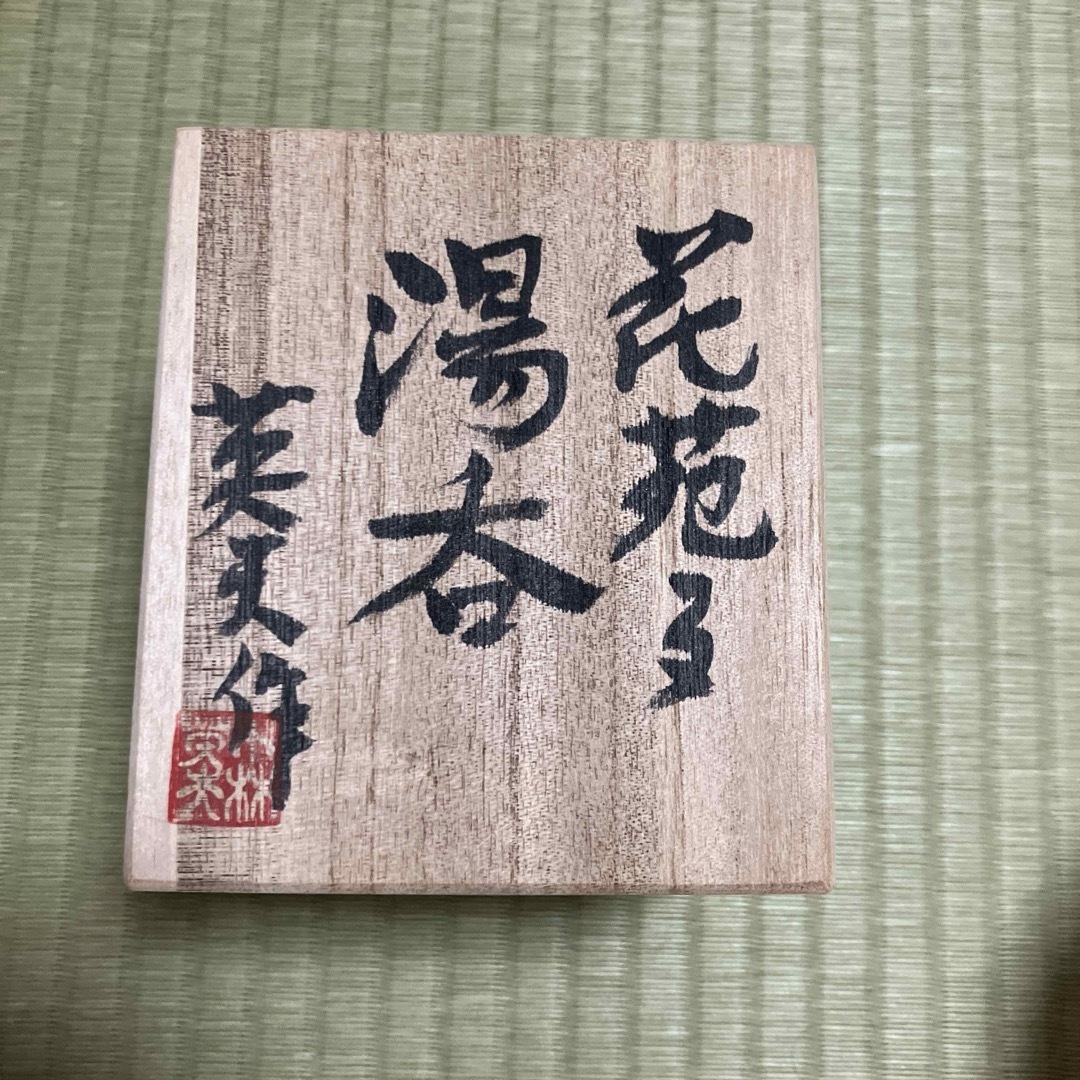 花苑
湯呑
英夫作
小林英夫